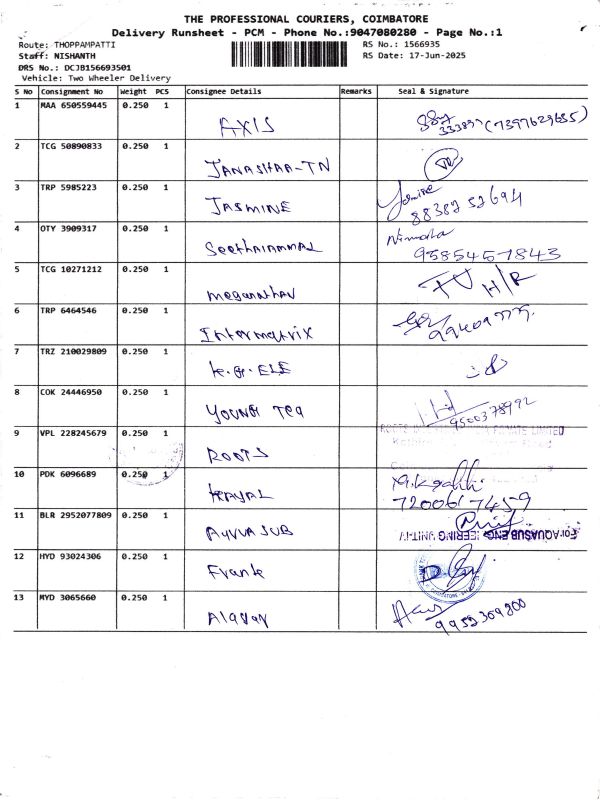 THE PROFESSIONAL COURIERS, COIMBATORE
Delivery Runsheet - PCM - Phone No.:9047080280 - Page No.:1
Route: THOPPAMPATTI RS No.: 1566935
Staff: NISHANTH RS Date: 17-Jun-2025
DRS No.: DCJB156693501
Vehicle: Two Wheeler Delivery
S No Consignment No Weight PCS Consignee Details Remarks Seal & Signature
1 MAA 650559445 0.250 1 AXIS (7397629685)
2 TCG 50890833 0.250 1 JANASHAA-TN
3 TRP 5985223 0.250 1 JASMINE Jasmine
88382 52694
4 OTY 3909317 0.250 1 Seethalammal Nirmala
9585457843
5 TCG 10271212 0.250 1 meganathan H/R
6 TRP 6464546 0.250 1 Informatrix
7 TRZ 210029809 0.250 1 K.G.ELE
8 COK 24446950 0.250 1 YOUNG Tea 9500378992
9 VPL 228245679 0.250 1 ROOTS PRIVATE LIMITED
10 PDK 6096689 0.250 1 KAYAL
7200617459
11 BLR 2952077809 0.250 1 AQUASUB For AQUASUB ENGINEERING UNIT-IV
12 HYD 93024306 0.250 1 Frank
13 MYD 3065660 0.250 1 Alagar
9952309800